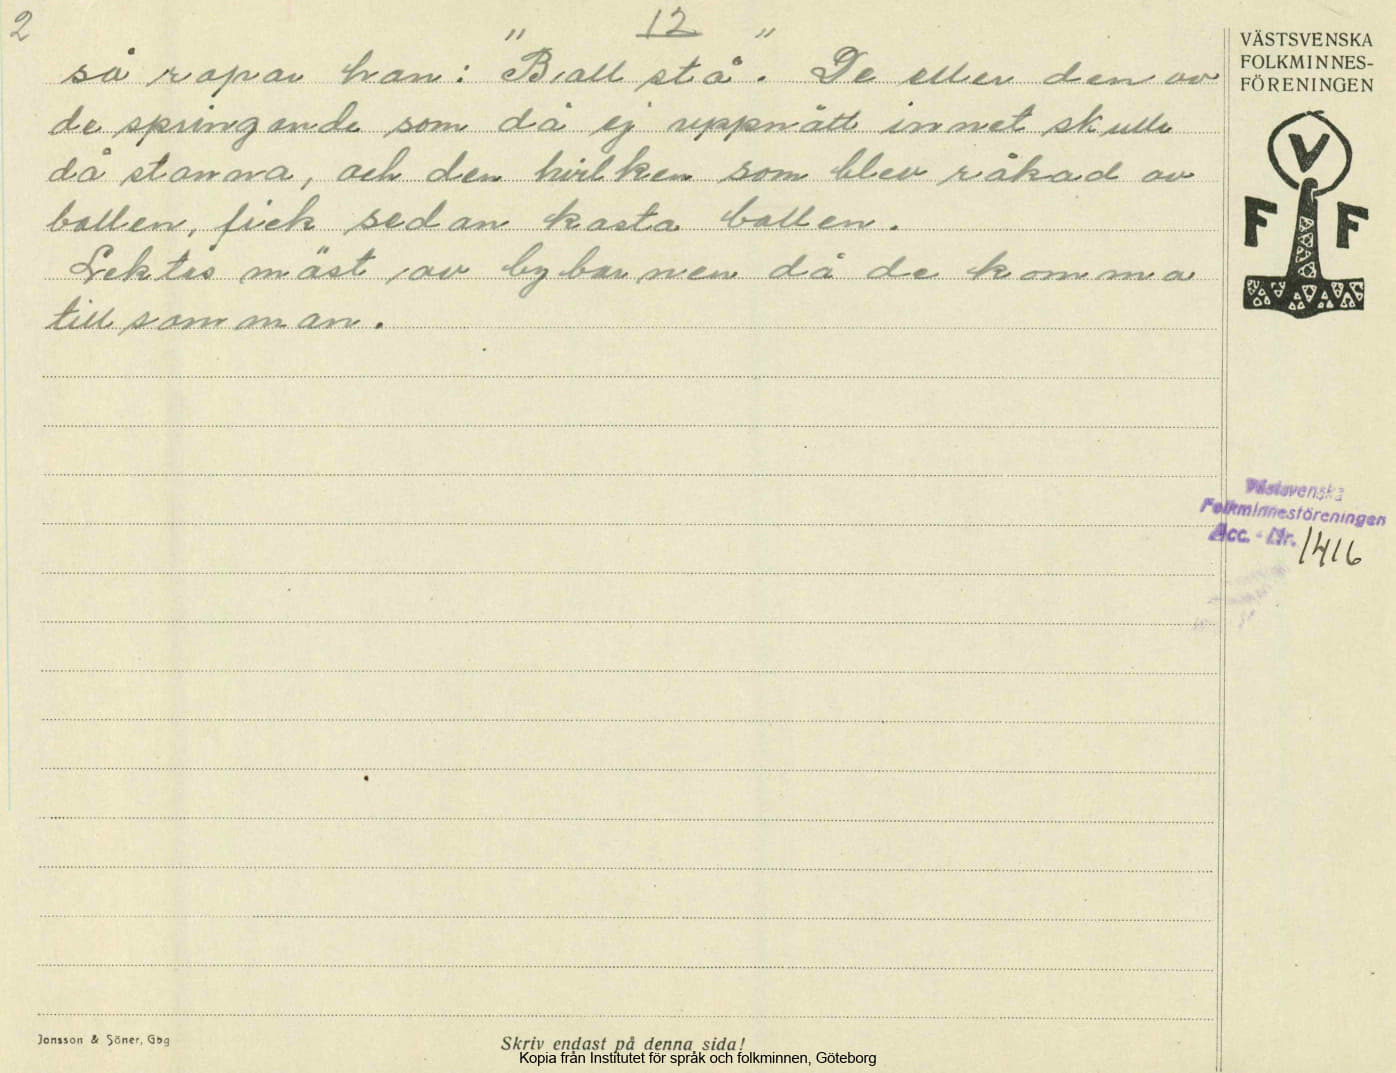 2
12
så ropar han: "Ball stå". De eller den av
de springande som då ej uppnått innet skulle
då stanna, och den hvilken som blev råkad av
bollen, fick sedan kasta bollen.
Lektes mäst av bybarnen då de komma
till samman.
VÄSTSVENSKA
FOLKMINNES-
FÖRENINGEN
V
F F
Västsvenska
Folkminnesföreningen
Acc. - Nr. 1416
Jonsson & Söner, Gbg
Skriv endast på denna sida!
Kopia från Institutet för språk och folkminnen, Göteborg